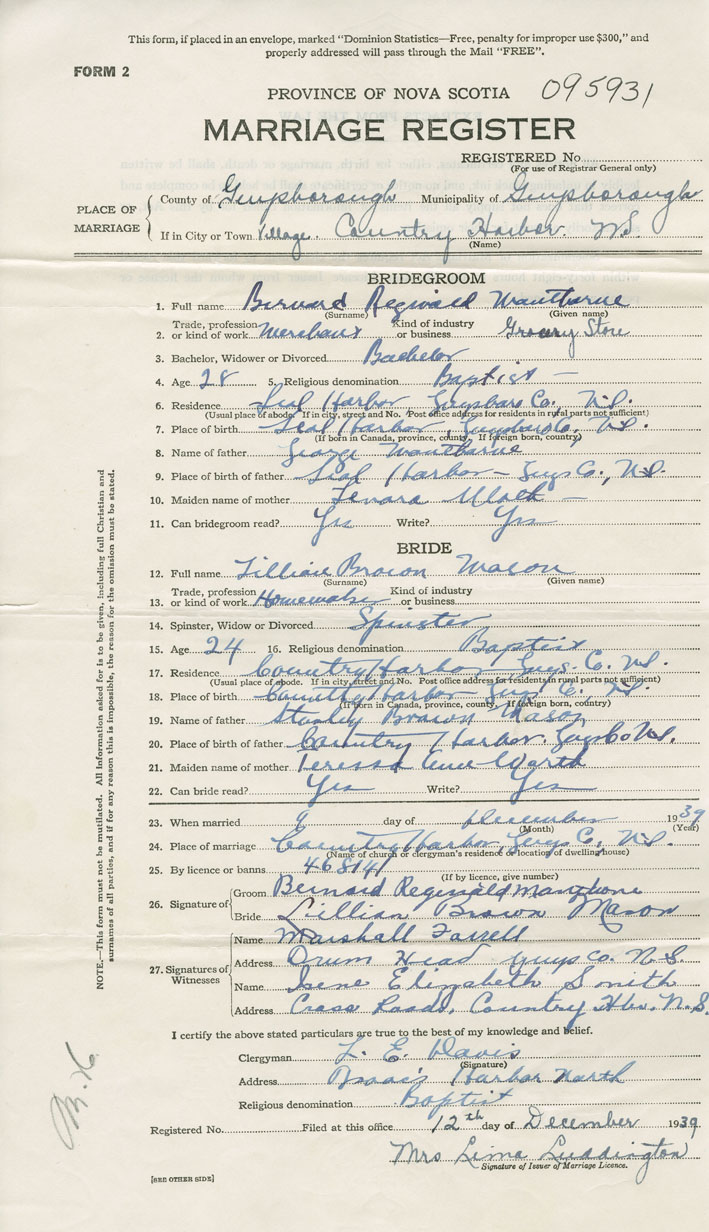 This form, if placed in an envelope, marked "Dominion Statistics—Free, penalty for improper use $300," and
properly addressed will pass through the Mail "FREE".
FORM 2
PROVINCE OF NOVA SCOTIA 095931
MARRIAGE REGISTER
REGISTERED No.
(For use of Registrar General only)
PLACE OF MARRIAGE
County of Guysborough Municipality of Guysborough
If in City or Town Village. Country Harbor. N.S.
(Name)
BRIDEGROOM
1. Full name Bernard Reginald Manthorne
(Surname) (Given name)
Trade, profession Kind of industry
2. or kind of work Merchant or business Grocery Store
3. Bachelor, Widower or Divorced Bachelor
4. Age 28 5. Religious denomination Baptist —
6. Residence Seal Harbor Guysboro Co., N.S.
(Usual place of abode. If in city, street and No. Post office address for residents in rural parts not sufficient)
7. Place of birth Seal Harbor, Guysboro Co., N.S.
(If born in Canada, province, county. If foreign born, country)
8. Name of father George Manthorne
9. Place of birth of father Seal Harbor — Guys Co., N.S.
10. Maiden name of mother —
11. Can bridegroom read? Yes Write? Yes
BRIDE
12. Full name Lillian Brown Mason
(Surname) (Given name)
Trade, profession Kind of industry
13. or kind of work Homemaker or business
14. Spinster, Widow or Divorced Spinster
15. Age 24 16. Religious denomination Baptist
17. Residence Country Harbor — Guys. Co. N.S.
(Usual place of abode. If in city, street and No. Post office address for residents in rural parts not sufficient)
18. Place of birth Country Harbor — Guys Co. N.S.
(If born in Canada, province, county. If foreign born, country)
19. Name of father Stanley Brown Mason
20. Place of birth of father Country Harbor. Guys Co N.S.
21. Maiden name of mother Teressa
22. Can bride read? Yes Write? Yes
23. When married 9 day of December 1939
(Month) (Year)
24. Place of marriage Country Harbor, Guys Co, N.S.
(Name of church or clergyman's residence or location of dwelling house)
25. By licence or banns 468141
(If by licence, give number)
26. Signature of
Groom Bernard Reginald Manthorne
Bride Lillian Brown Mason
27. Signatures of Witnesses
Name Marshall Farrell
Address Drum Head Guys Co. N.S.
Name Irene Elizabeth Smith
Address Cross Roads, Country Hbr. N.S.
I certify the above stated particulars are true to the best of my knowledge and belief.
Clergyman L. E. Davis
(Signature)
Address Isaacs Harbor North
Religious denomination Baptist
Registered No. Filed at this office 12th day of December 1939
Mrs Lima Luddington
Signature of Issuer of Marriage Licence.
[SEE OTHER SIDE]
NOTE.—This form must not be mutilated. All information asked for is to be given, including full Christian and
surnames of all parties, and if for any reason this is impossible, the reason for the omission must be stated.